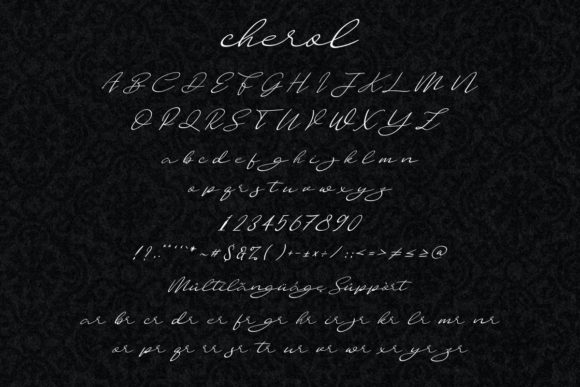 cherol
A B C D E F G H I J K L M N
O P Q R S T U V W X Y Z
a b c d e f g h i j k l m n
o p q r s t u v w x y z
1 2 3 4 5 6 7 8 9 0
!?.,:"''""*~#$&%()+-±×÷/:;<=>≠≤≥@
Mùltilãngúágę Sùppòrt
ar br cr dr er fr gr hr ir jr kr lr mr nr
or pr qr rr sr tr ur vr wr xr yr zr